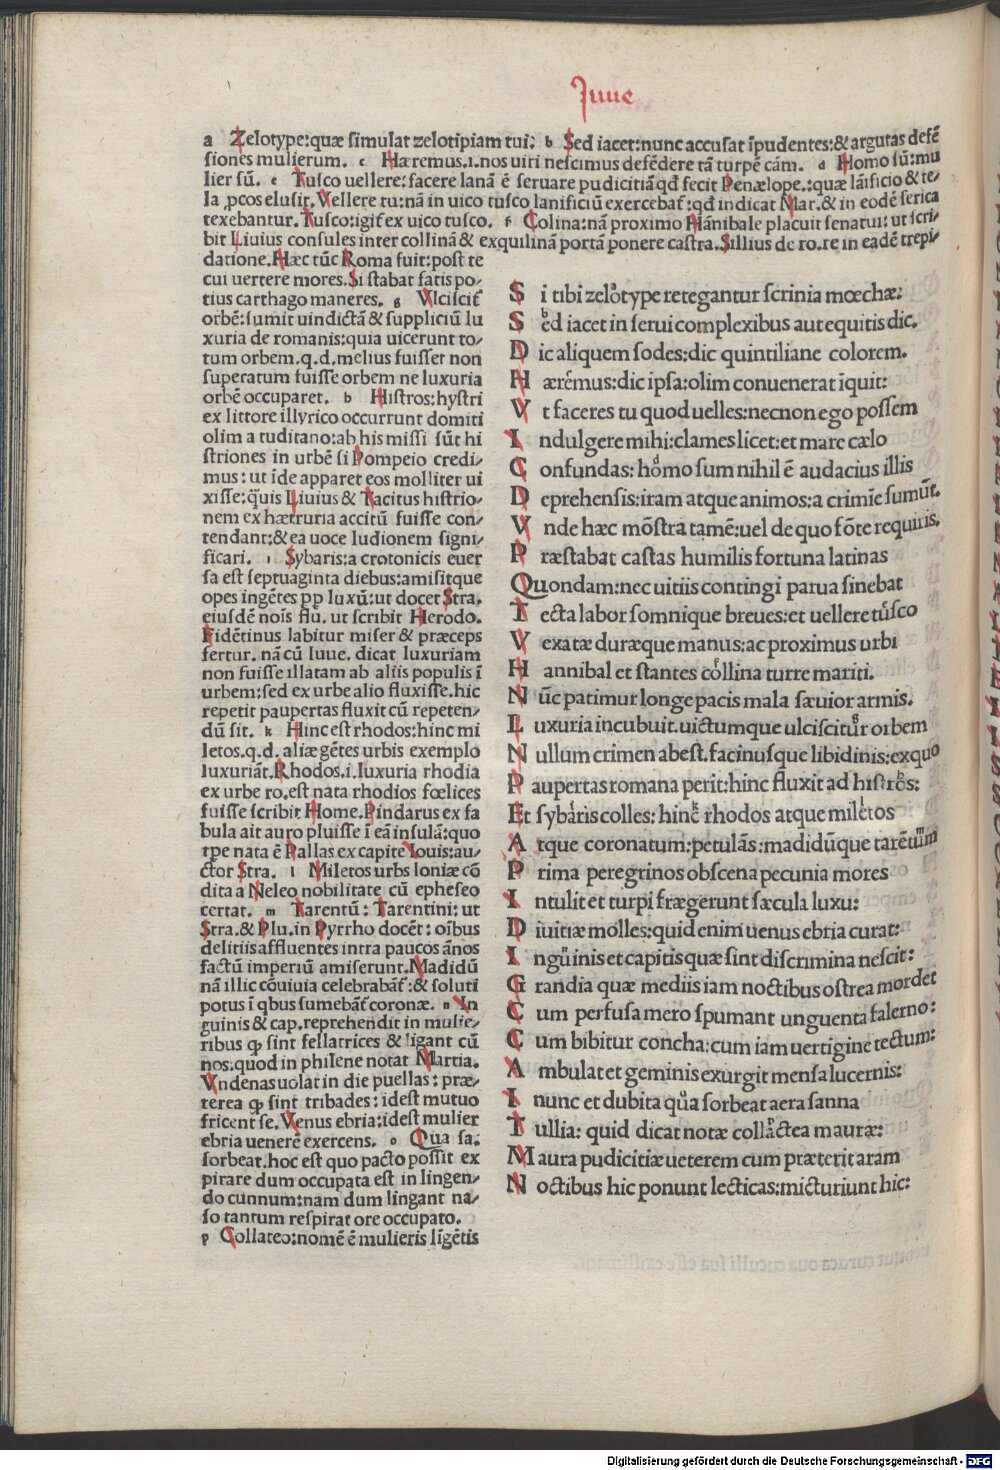 Iuue
a Zelotype:quæ simulat zelotipiam tui: b Sed iacet:nunc accusat īpudentes:& argutas defē
siones mulierum. c Hæremus.i.nos uiri nescimus defēdere tā turpē cām. d Homo sū:mu
lier sū. e Tusco uellere:facere lanā ē seruare pudicitiā qđ fecit Penælope.:quæ lāificio & te/
la ꝓcos elusit. Vellere tu:nā in uico tusco lanificiū exercebat̄:qđ indicat Mar.& in eodē serica
texebantur. Tusco:igit̄ ex uico tusco. f Colina:nā proximo Hānibale placuit senatui: ut scri/
bit Liuius consules inter collinā & exquilinā portā ponere castra.Sillius de ro.re in eadē trepi/
datione.Hæc tūc Roma fuit:post te
cui uertere mores.Si stabat fatis po/
tius carthago maneres. g Vlciscit̄
orbē:sumit uindictā & suppliciū lu
xuria de romanis:quia uicerunt to/
tum orbem.q.d.melius fuisset non
superatum fuisse orbem ne luxuria
orbē occuparet. h Histros:hystri
ex littore illyrico occurrunt domiti
olim a tuditano:ab his missi sūt hi
striones in urbē si Pompeio credi/
mus: ut īde apparet eos molliter ui
xisse:q̄uis Liuius & Tacitus histrio/
nem ex hætruria accitū fuisse con/
tendant:& ea uoce ludionem signi/
ficari. i Sybaris:a crotonicis euer
sa est septuaginta diebus:amisitque
opes ingētes ꝓp luxū:ut docet Stra.
eiusdē noīs flu. ut scribit Herodo.
Fidētinus labitur miser & præceps
fertur. nā cū Iuue. dicat luxuriam
non fuisse illatam ab aliis populis ī
urbem:sed ex urbe alio fluxisse.hic
repetit paupertas fluxit cū repeten/
dū sit. k Hinc est rhodos:hinc mi
letos.q.d. aliæ gētes urbis exemplo
luxuriāt.Rhodos.i.luxuria rhodia
ex urbe ro.est nata rhodios fœlices
fuisse scribit Home.Pindarus ex fa
bula ait auro pluisse ī eā insulā:quo
tpe nata ē Pallas ex capite Iouis:au/
ctor Stra. l Miletos urbs Ioniæ cō
dita a Neleo nobilitate cū epheseo
certat. m Tarentū: Tarentini: ut
Stra.& Plu.in Pyrrho docēt: oībus
delitiis affluentes intra paucos ānos
factū imperiū amiserunt.Madidū
nā illic cōuiuia celebrabāt̄:& soluti
potus ī qbus sumebāt̄ coronæ. n In
guinis & cap.reprehendit in mulie/
ribus ꝙ sint fellatrices & ligant cū
nos:quod in philene notat Martia.
Vndenas uolat in die puellas: præ/
terea ꝙ sint tribades: idest mutuo
fricent se.Venus ebria:idest mulier
ebria uenerē exercens. o Qua sa.
sorbeat.hoc est quo pacto possit ex
pirare dum occupata est in lingen/
do cunnum:nam dum lingant na/
so tantum respirat ore occupato.
p Collateo:nomē ē mulieris līgētis
S i tibi zelotype retegantur scrinia mœchæ:
S ed iacet in serui complexibus aut equitis dic.
D ic aliquem sodes:dic quintiliane colorem.
H æremus:dic ipsa:olim conuenerat īquit:
V t faceres tu quod uelles:necnon ego possem
I ndulgere mihi:clames licet:et mare cælo
C onfundas: homo sum nihil ē audacius illis
D eprehensis:iram atque animos:a crimīe sumūt.
V nde hæc mōstra tamē:uel de quo fōte requiris.
P ræstabat castas humilis fortuna latinas
Quondam:nec uitiis contingi parua sinebat
T ecta labor somnique breues:et uellere tusco
V exatæ duræque manus:ac proximus urbi
H annibal et stantes collina turre mariti.
N ūc patimur longe pacis mala sæuior armis.
L uxuria incubuit.uictumque ulciscitur orbem
N ullum crimen abest.facinusque libidinis:exquo
P aupertas romana perit:hinc fluxit ad histros:
Et sybaris colles: hinc rhodos atque miletos
A tque coronatum:petulās:madidūque tarētum
P rima peregrinos obscena pecunia mores
I ntulit et turpi frægerunt sæcula luxu:
D iuitiæ molles:quid enim uenus ebria curat:
I nguinis et capitis quæ sint discrimina nescit:
G randia quæ mediis iam noctibus ostrea mordet
C um perfusa mero spumant unguenta falerno:
C um bibitur concha:cum iam uertigine tectum:
A mbulat et geminis exurgit mensa lucernis:
I nunc et dubita qua sorbeat aera sanna
T ullia: quid dicat notæ collactea mauræ:
M aura pudicitiæ ueterem cum præterit aram
N octibus hic ponunt lecticas:micturiunt hic:
Digitalisierung gefördert durch die Deutsche Forschungsgemeinschaft - DFG